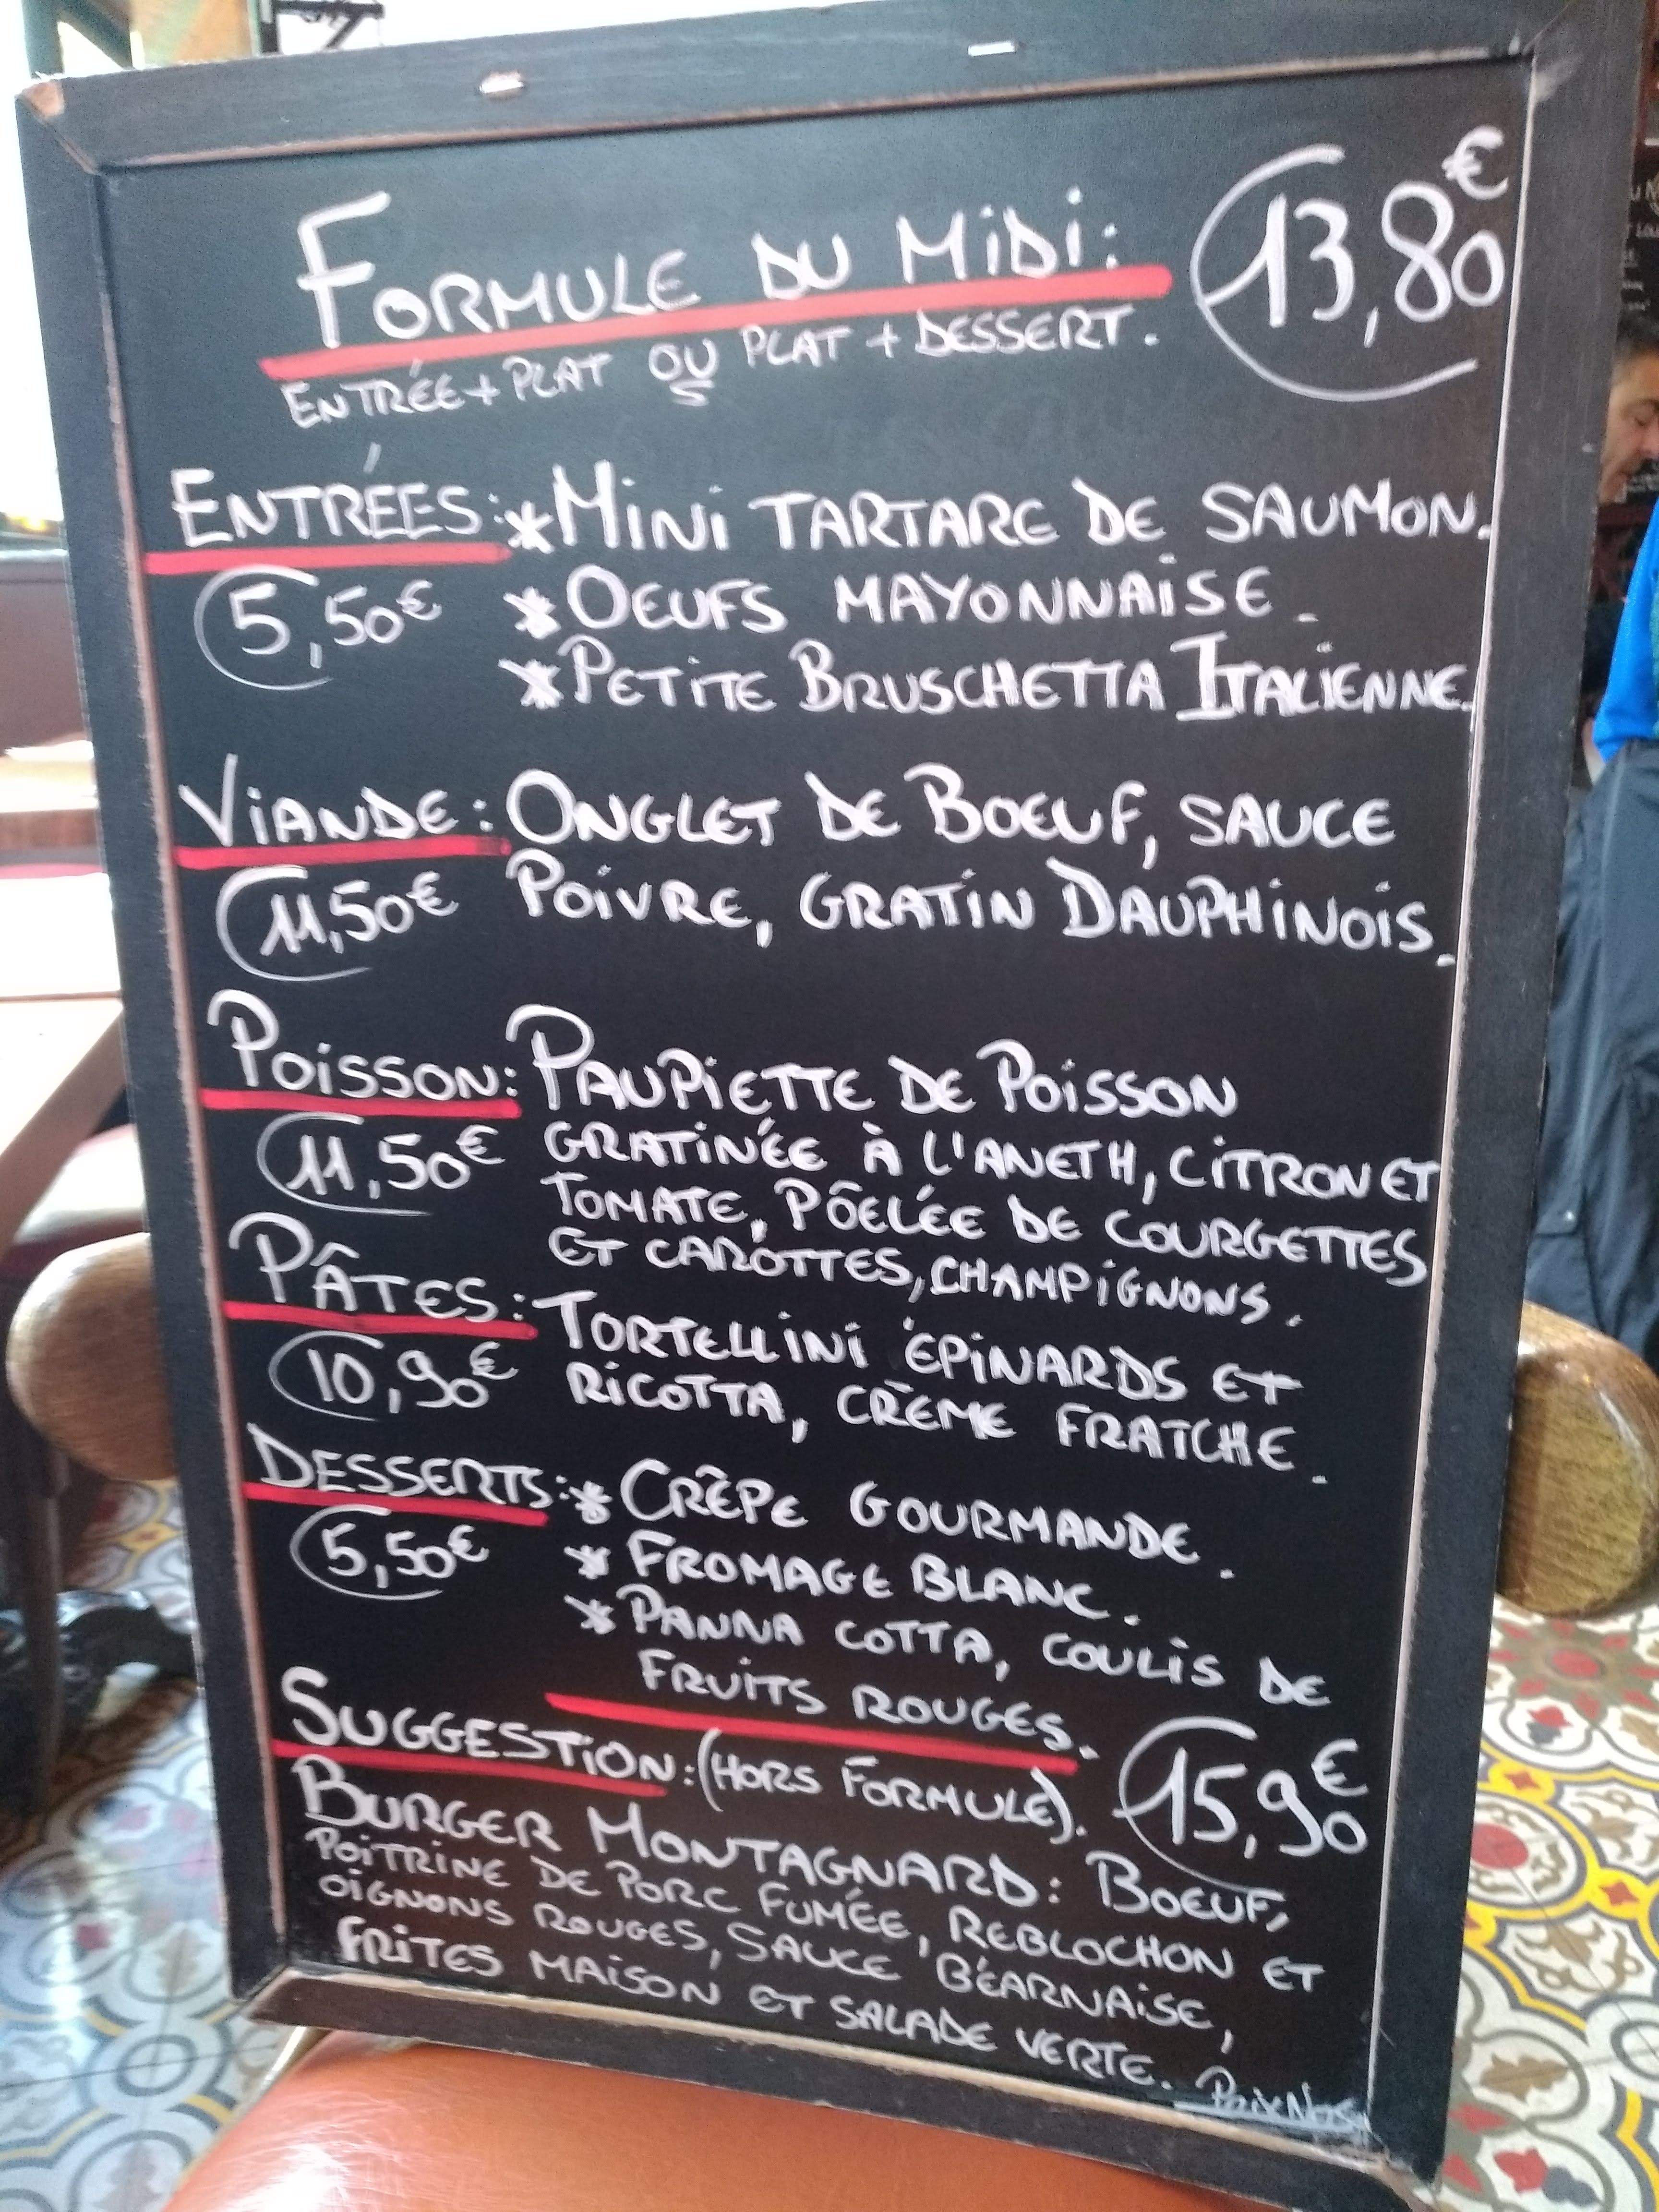 FORMULE DU MIDI: 13,80€
ENTRÉE + PLAT OU PLAT + DESSERT.
ENTRÉES: * MINI TARTARE DE SAUMON.
5,50€ * OEUFS MAYONNAISE.
* PETITE BRUSCHETTA ITALIENNE.
VIANDE: ONGLET DE BOEUF, SAUCE
11,50€ POIVRE, GRATIN DAUPHINOIS.
POISSON: PAUPIETTE DE POISSON
11,50€ GRATINÉE À L'ANETH, CITRON ET
TOMATE, PÔELÉE DE COURGETTES
ET CAROTTES, CHAMPIGNONS.
PÂTES: TORTELLINI ÉPINARDS ET
10,90€ RICOTTA, CRÈME FRAÎCHE.
DESSERTS: * CRÊPE GOURMANDE.
5,50€ * FROMAGE BLANC.
* PANNA COTTA, COULIS DE
FRUITS ROUGES.
SUGGESTION: (HORS FORMULE). 15,90€
BURGER MONTAGNARD: BOEUF,
POITRINE DE PORC FUMÉE, REBLOCHON ET
OIGNONS ROUGES, SAUCE BÉARNAISE,
FRITES MAISON ET SALADE VERTE.